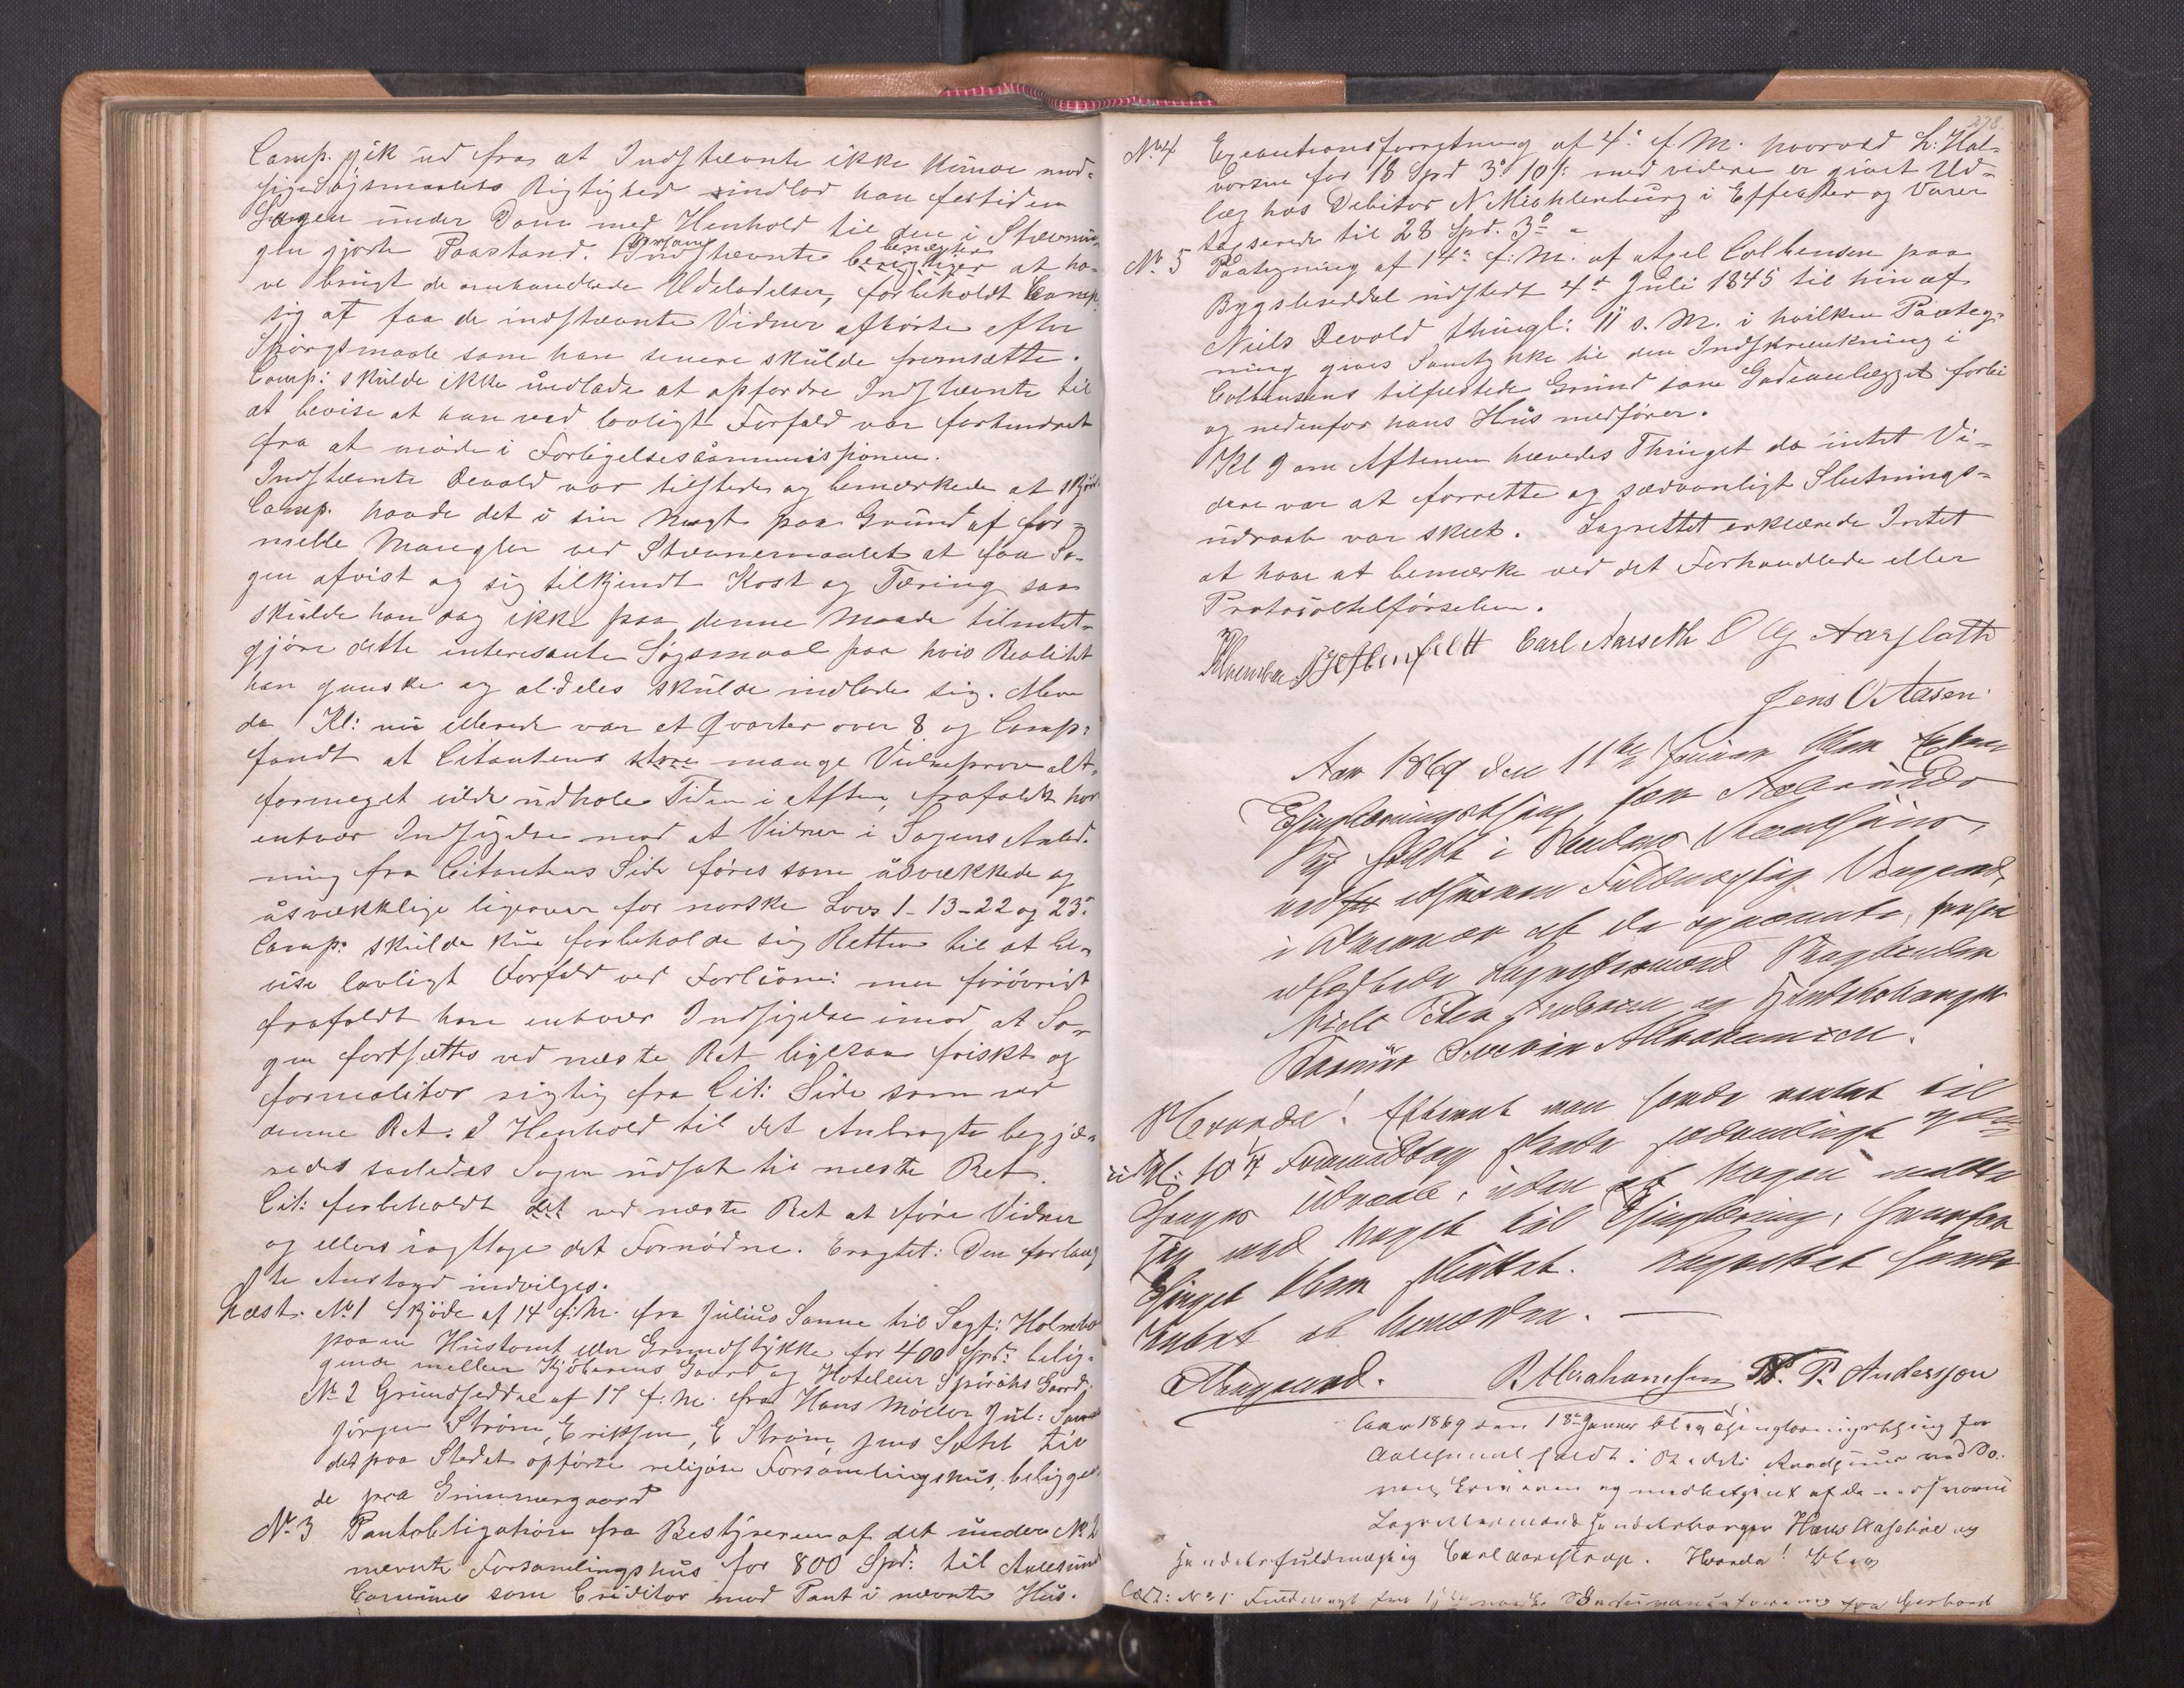 Comp. gik ud fra at Indstævnte ikke kunde mod-
sige Søgsmaalets Rigtighed indlod han fortiden
Sagen under Dom med Henhold til den i Stævnin-
gen gjorte Paastand. Indstævnte benægter at ha-
ve brugt de omhandlede Udeladelser, forbeholdt Comp.
sig at faa de indstævnte Vidner afhørte efter
Spørgsmaale som han senere skulde fremsætte.
Comp: skulde ikke undlade at opfordre Indstævnte til
at bevise at han ved lovligt Forfald var forhindret
fra at møde i Forligelsescommissionen.
Indstævnte Devold var tilstede og bemærkede at skjønt
Comp. havde det i sin Magt paa Grund af for-
melle Mangler ved Stævnemaalet at faa Sa-
gen afvist og sig tilkjendt Kost og Tæring saa
skulde han dog ikke paa denne Maade tilintet-
gjøre dette interesante Søgsmaal paa hvis Realitet
han ganske og aldeles skulde indlade sig. Men
da Kl: nu allerede var et Qvarter over 8 og Comp:
fandt at Citantens store mange Vidneprov alt-
formeget vilde udhole Tiden i Aften, frafaldt han
enhver Indsigelse mod at Vidner i Sagens Anled-
ning fra Citantens Side føres som usvækkede og
usvækklige ligeover for norske Lovs 1-13-22 og 23:
Comp: skulde kun forbeholde sig Retten til at be-
vise lovligt Forfald ved Forlcom: men forøvrigt
frafaldt han enhver Indsigelse imod at Sa-
gen fortsættes ved næste Ret ligesaa friskt og
formaliter rigtig fra Cit: Side som ved
denne Ret. I Henhold til det Anbragte begjæ-
redes saaledes Sagen udsat til næste Ret.
Cit: forbeholdt det ved næste Ret at føre Vidner
og ellers iagttage det Fornødne. Eragtet: Den forlang
te Anstand indvilges.
Læst. No 1 Skjøde af 14 f: M. fra Julius Sanne til Sagf: Holmbo
paa en Hustomt eller Grundstykke for 400 Spd: belig-
gende mellem Kjøbmens Gaard og Hotelleier Gaard.
No 2 Grundseddel af 17 f. M. fra Hans Møller Jul: Sanne
Jørgen Strøm, Eriksen, E Strøm, Jens til
det paa Stedet opførte religiøse Forsamlingshus, beliggen
de paa Grimmergaard
No 3 Pantobligation fra Bestyreren af det under No 2
nævnte Forsamlingshus for 800 Spd: til Aalesund
Commune som Creditor mod Pant i nævnte Hus.
278.
No 4 Executionsforretning af 4: f. M. hvorved L: Hal-
vorsen for 18 Spd 3 10 s: med videre er givet Ud-
læg hos Debitor N Mechlenburg i Effecter og Varer
taxerede til 28 Spd. 3
No 5 Paategning af 14: f: M. af Axel Colbensen paa
Bygselseddel udstedt 4 Juli 1845 til hin af
Niels Devold thingl: 11 s. M. i hvilken Paateg-
ning gives Samtykke til den Indskrænkning i
Colbensens tilfæstede Grund som Gadeanlægget forbi
og nedenfor hans Hus medfører.
Kl 9 om Aftenen hævedes Thinget da intet Vi-
dere var at forrette og sædvanligt Slutnings-
udraab var skeet. Lagrettet erklærede Intet
at have at bemærke ved det Forhandlede eller
Protocoltilførselen.
Carl Aarseth O Aarflath
Jens O Aasen
Aar 1869 den 11te Januar blev
Thinglæsningsthing for Aalesunds
By holdt i Stedets Raadhuus,
ved Fuldmægtig
i Overvær af de opnævnte,
Lagrettesmænd
Niels Peter Andersen og Handelsborger
Rasmus Severin Abrahamsen.
Hvorda! Efterat man havde ventet til
Kl: 10 1/4 Formiddag skede sædvanligt
Ganges Udraab, uden at Nogen meldte
sig med noget til Thinglæsning, hvorfor
Thinget blev sluttet. Lagrettet havde
Intet at bemærke.
R. Abrahamsen N. P. Anderssen
Aar 1869 den 18 Januar blev Thinglæsningsthing for
Aalesund holdt i Stedets Raadhuus
og medbetjent af de
Lagrettesmænd Handelsborger Hans og
Handelsfuldmægtig Carl Aarestrup. Hvorda! blev
Læst: No 1 Fuldmagt fra Gerhard